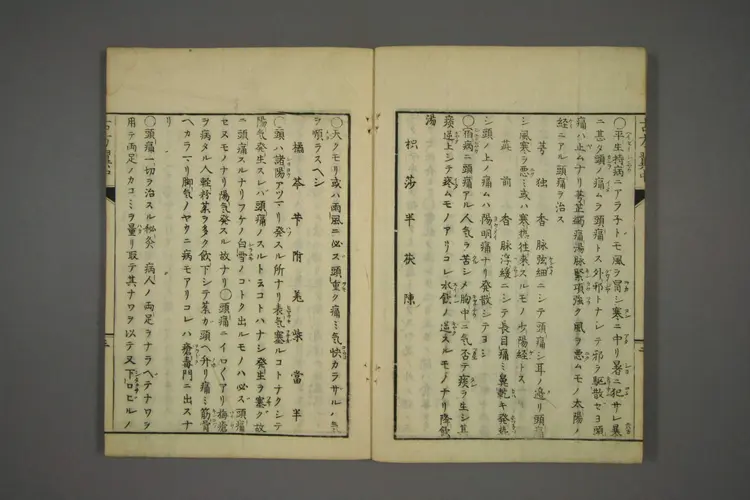 〇平生持病ニアラネトモ風ヲ冒シ寒ニ中リ暑ニ犯サレ暴
ニ甚タ頭ノ痛ムヲ頭痛トス外邪トナシテ邪ヲ駆散セヨ頭
痛ハ止ムナリ 頭痛湯脉緊項強ク風ヲ悪ムモノ太陽ノ
経ニアル頭痛ヲ治ス
芎 独 香 脉弦細ニシテ頭痛シ耳ノ辺リ頭
シ風寒ヲ悪ミ或ハ寒熱往来スルモノ少陽経トス
前 香 脉浮緩ニシテ長目痛ミ鼻乾キ発熱
シ頭ノ上ノ痛ムハ陽明痛ナリ発散シテヨシ
〇宿病ニ頭痛アル人気ヲ苦シメ胸中ニ気否テ痰ヲ生シ其
痰逆上シテ痛ムモノアリコレ水飲ノ逆スルモノナリ降
湯
枳 莎 半 茯 陳
〇大クモリ或ハ雨風ニ必ス頭重ク痛ミ気快カラサルハ
ヲ順ラスヘシ
橘 苓 芋 附 羌 柴 當 半
〇頭ハ諸陽アツマリ発スル所ナリ表気塞ルコトナクシテ
陽気発生スレハ頭痛ノスルト云コトハナシ発生ヲ塞ク故
ニ頭痛スルナリフケノ白雪ノコトク出ルモノハ必ス頭痛
セスモノナリ陽気発スル故ナリ〇頭痛ニイロ〱アリ梅瘡
ヲ病タル人軽粉薬ヲ多ク飲下シテ薬カ頭ヘ升リ痛ミ筋骨
ヘカラマリ脚気ノヤウニ病モアリコレハ瘡毒門ニ出スナ
リ
〇頭痛一切ヲ治スル秘灸 病人ノ両足ヲナラヘテナワヲ
用テ両足ノカコミヲ量リ取テ其ナワヲ以テ又下ロヒルノ